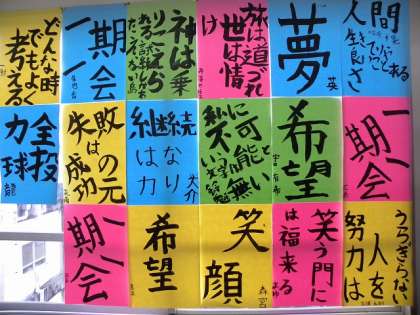 人間
夢
英
旅は道づれ
世は情
け
神は乗
りこえら
れる試練しか
一期
一会
どんな時
でもよく
考える
一期
一会
希望
私に
不可能と
いう
無い
継続
は力
なり
大介
失敗は
成功の元
全力
投球
努力は
人を
うらぎらない
笑う門に
は福来る
笑顔
希望
一期
一会